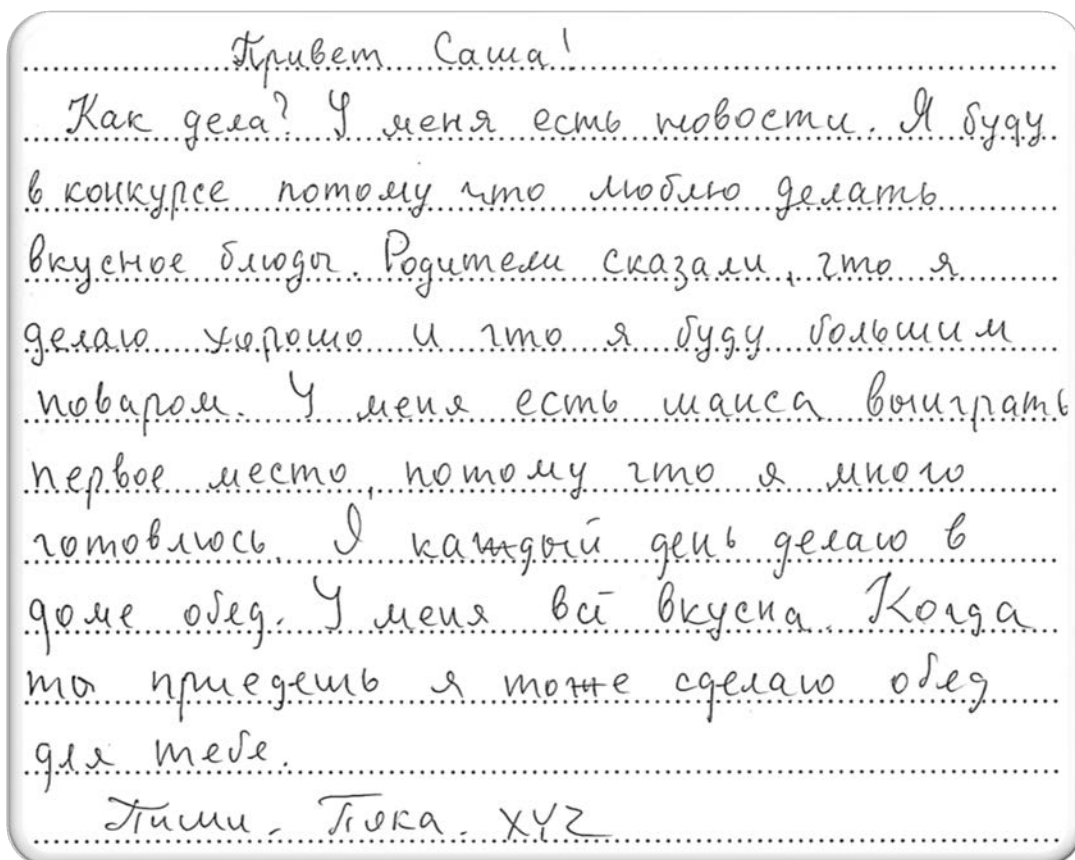 Привет Саша!
Как дела? У меня есть новости. Я буду
в конкурсе потому что люблю делать
вкусное блюды. Родители сказали, что я
делаю хорошо и что я буду большим
поваром. У меня есть шанса выиграть
первое место, потому что я много
готовлюсь. Я каждый день делаю в
доме обед. У меня всё вкусна. Когда
ты приедешь я тоже сделаю обед
для тебе.
Пиши. Пока. XYZ